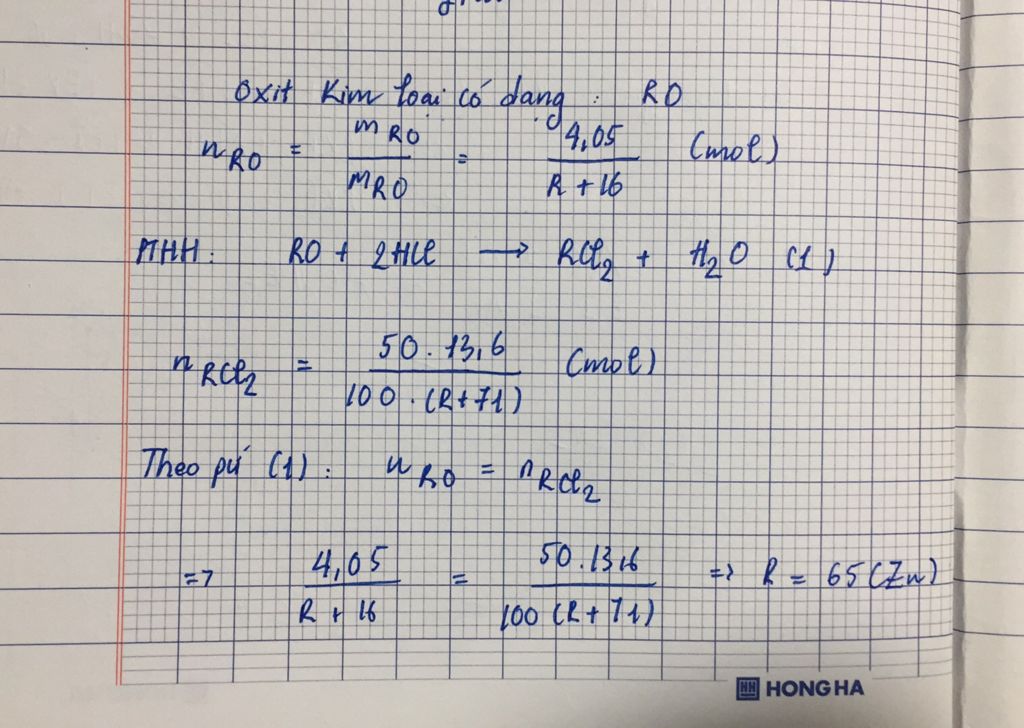 Oxit Kim loại có dạng : RO
n RO = m RO / M RO = 4,05 / R + 16 (mol)
PTHH : RO + 2HCl → RCl2 + H2O (1)
n RCl2 = 50 . 13,6 / 100 . (R+71) (mol)
Theo pứ (1) : n RO = n RCl2
=> 4,05 / R + 16 = 50 . 13,6 / 100 (R+71) => R = 65 (Zn)
HONG HA